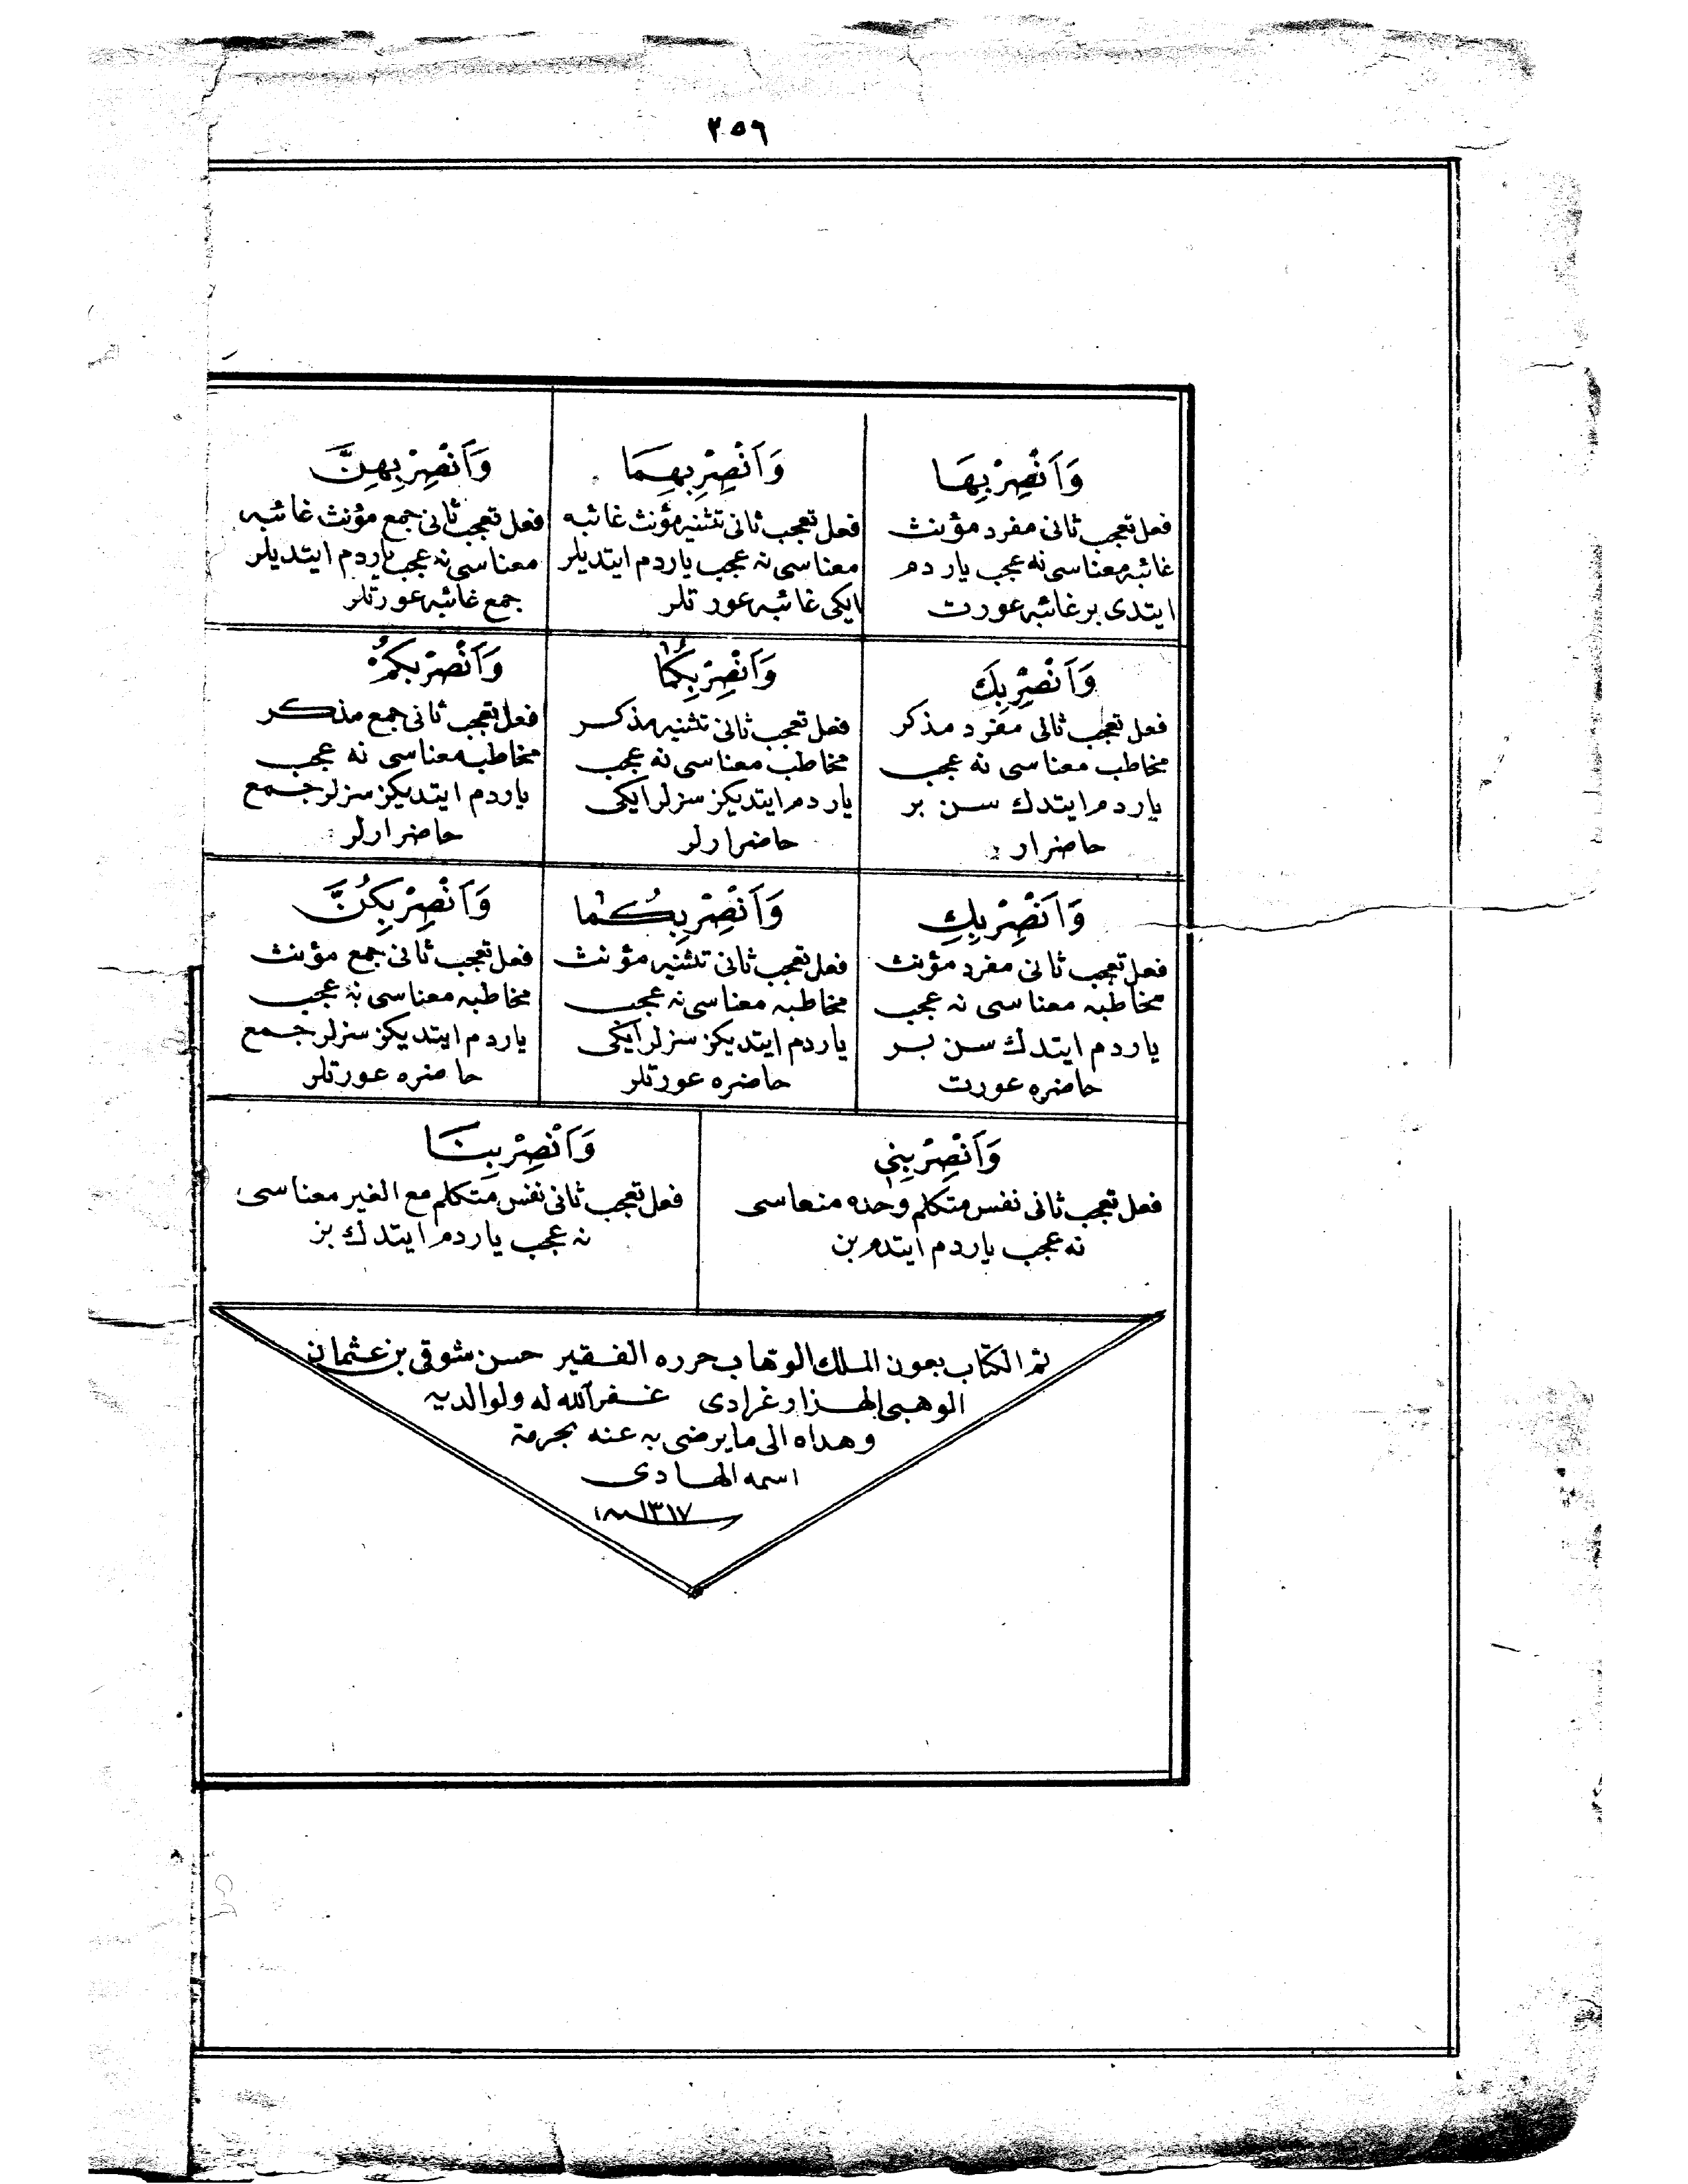 ٢٥٦
وَاَنْصِرْ بِهَا
فعل تعجب ثانى مفرد مؤنث
غائبه معناسى نه عجب ياردم
ايتدى بر غائبه عورت
وَاَنْصِرْ بِهِمَا
فعل تعجب ثانى تثنيه مؤنث غائبه
معناسى نه عجب ياردم ايتديلر
ايكى غائبه عورتلر
وَاَنْصِرْ بِهِنَّ
فعل تعجب ثانى جمع مؤنث غائبه
معناسى نه عجب ياردم ايتديلر
جمع غائبه عورتلر
وَاَنْصِرْ بِكَ
فعل تعجب ثانى مفرد مذكر
مخاطب معناسى نه عجب
ياردم ايتدك سن بر
حاضر ار
وَاَنْصِرْ بِكُمَا
فعل تعجب ثانى تثنيه مذكر
مخاطب معناسى نه عجب
ياردم ايتديكز سزلر ايكى
حاضر ارلر
وَاَنْصِرْ بِكُمْ
فعل تعجب ثانى جمع مذكر
مخاطب معناسى نه عجب
ياردم ايتديكز سزلر جمع
حاضر ارلر
وَاَنْصِرْ بِكِ
فعل تعجب ثانى مفرد مؤنث
مخاطبه معناسى نه عجب
ياردم ايتدك سن بر
حاضره عورت
وَاَنْصِرْ بِكُمَا
فعل تعجب ثانى تثنيه مؤنث
مخاطبه معناسى نه عجب
ياردم ايتديكز سزلر ايكى
حاضره عورتلر
وَاَنْصِرْ بِكُنَّ
فعل تعجب ثانى جمع مؤنث
مخاطبه معناسى نه عجب
ياردم ايتديكز سزلر جمع
حاضره عورتلر
وَاَنْصِرْ بِنِى
فعل تعجب ثانى نفس متكلم وحده منعاسى
نه عجب ياردم ايتدم بن
وَاَنْصِرْ بِنَا
فعل تعجب ثانى نفس متكلم مع الغير معناسى
نه عجب ياردم ايتدك بز
تم الكتاب بعون الملك الوهاب حرره الفقير حسن شوقى بن عثمان
الوهبى الهزارغرادى غفر الله له ولوالديه
وهداه الى ما يرضى به عنه بحرمة
اسمه الهادى
١٣١٧